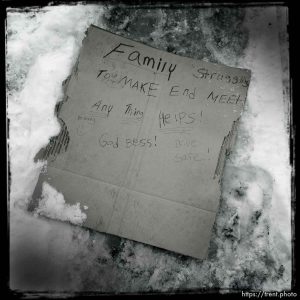 Family Struggling
To MAKE End MEET
Any Thing HELPS!
God bess!
safe!
https://trent.photo